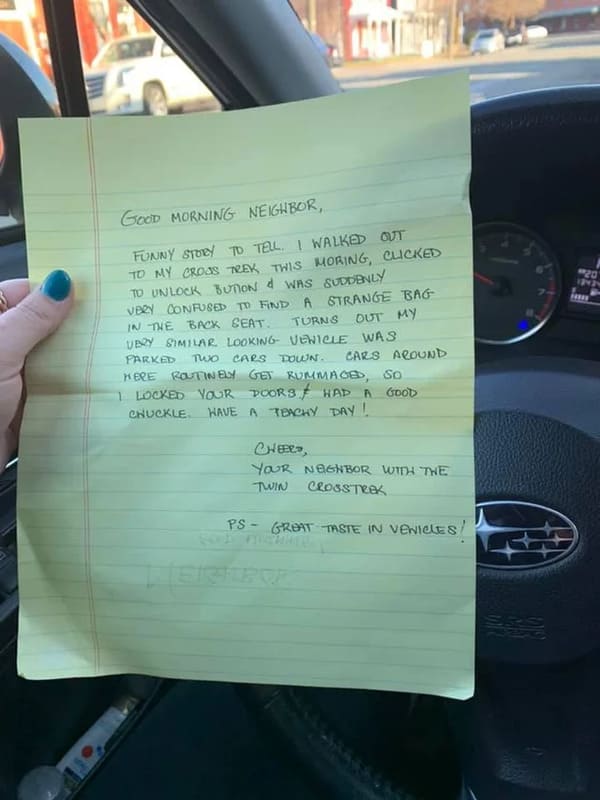 GOOD MORNING NEIGHBOR,
FUNNY STORY TO TELL. I WALKED OUT
TO MY CROSS TREK THIS MORING, CLICKED
TO UNLOCK BUTION & WAS SUDDENLY
VERY CONFUSED TO FIND A STRANGE BAG
IN THE BACK SEAT. TURNS OUT MY
VERY SIMILAR LOOKING VEHICLE WAS
PARKED TWO CARS DOWN. CARS AROUND
HERE ROUTINELY GET RUMMAGED, SO
I LOCKED YOUR DOORS & HAD A GOOD
CHUCKLE. HAVE A PEACHY DAY!
CHEERS,
YOUR NEIGHBOR WITH THE
TWIN CROSSTREK
PS - GREAT TASTE IN VEHICLES!
NEIGHBOR
SRS
AIRBAG